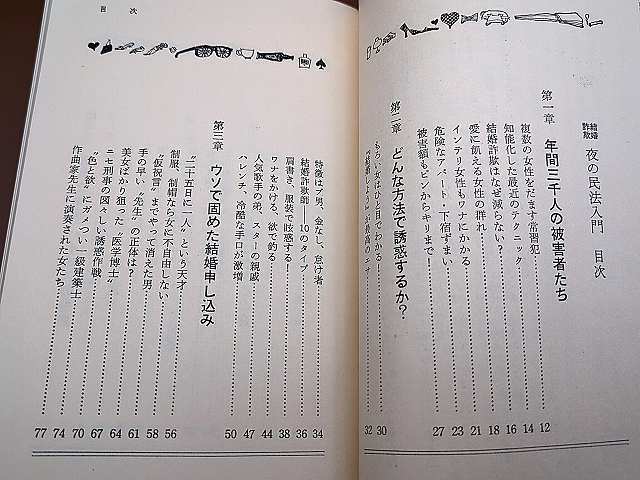 結婚詐欺 夜の民法入門 目次
第一章 年間三千人の被害者たち
複数の女性をだます常習犯……12
知能化した最近のテクニック……14
結婚詐欺はなぜ減らない?……16
愛に飢える女性の群れ……18
インテリ女性もワナにかかる……21
危険なアパート・下宿ずまい……23
被害額もピンからキリまで!……27
第二章 どんな方法で誘惑するか?
もろい女はひと目でわかる……30
“結婚しよう”が最高のエサ……32
目次
特徴はブ男、金なし、怠け者……34
結婚詐欺師――10のタイプ……36
肩書き、服装で眩惑する!……38
ワナをかける、欲で釣る……44
人気歌手の弟、スターの親戚……47
ハレンチ、冷酷な手口が激増……50
第三章 ウソで固めた結婚申し込み
“二十五日に一人”という天才……56
制服、制帽なら女に不自由しない……58
“仮祝言”までやって消えた男……61
手の早い“先生”の正体は?……64
美女ばかり狙った“医学博士”……67
ニセ刑事の図々しい誘惑作戦……70
“色と欲”にガメつい一級建築士……74
作曲家先生に演奏された女たち……77